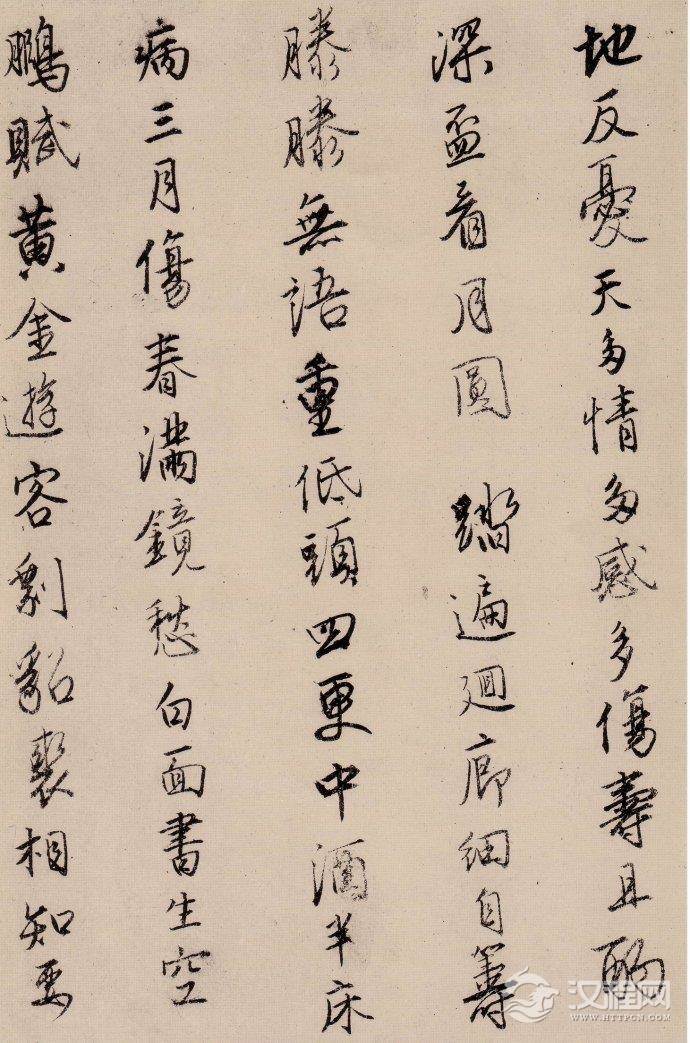 地反憂天多情多感多傷壽且酌
深盃看月圓 踏遍迴廊細自籌
滕滕無語重低頭四更中酒半床
病三月傷春滿鏡愁白面書生空
鵬賦黃金遊客剩貂裘相知要
汉程网
WWW.HTTPCN.COM